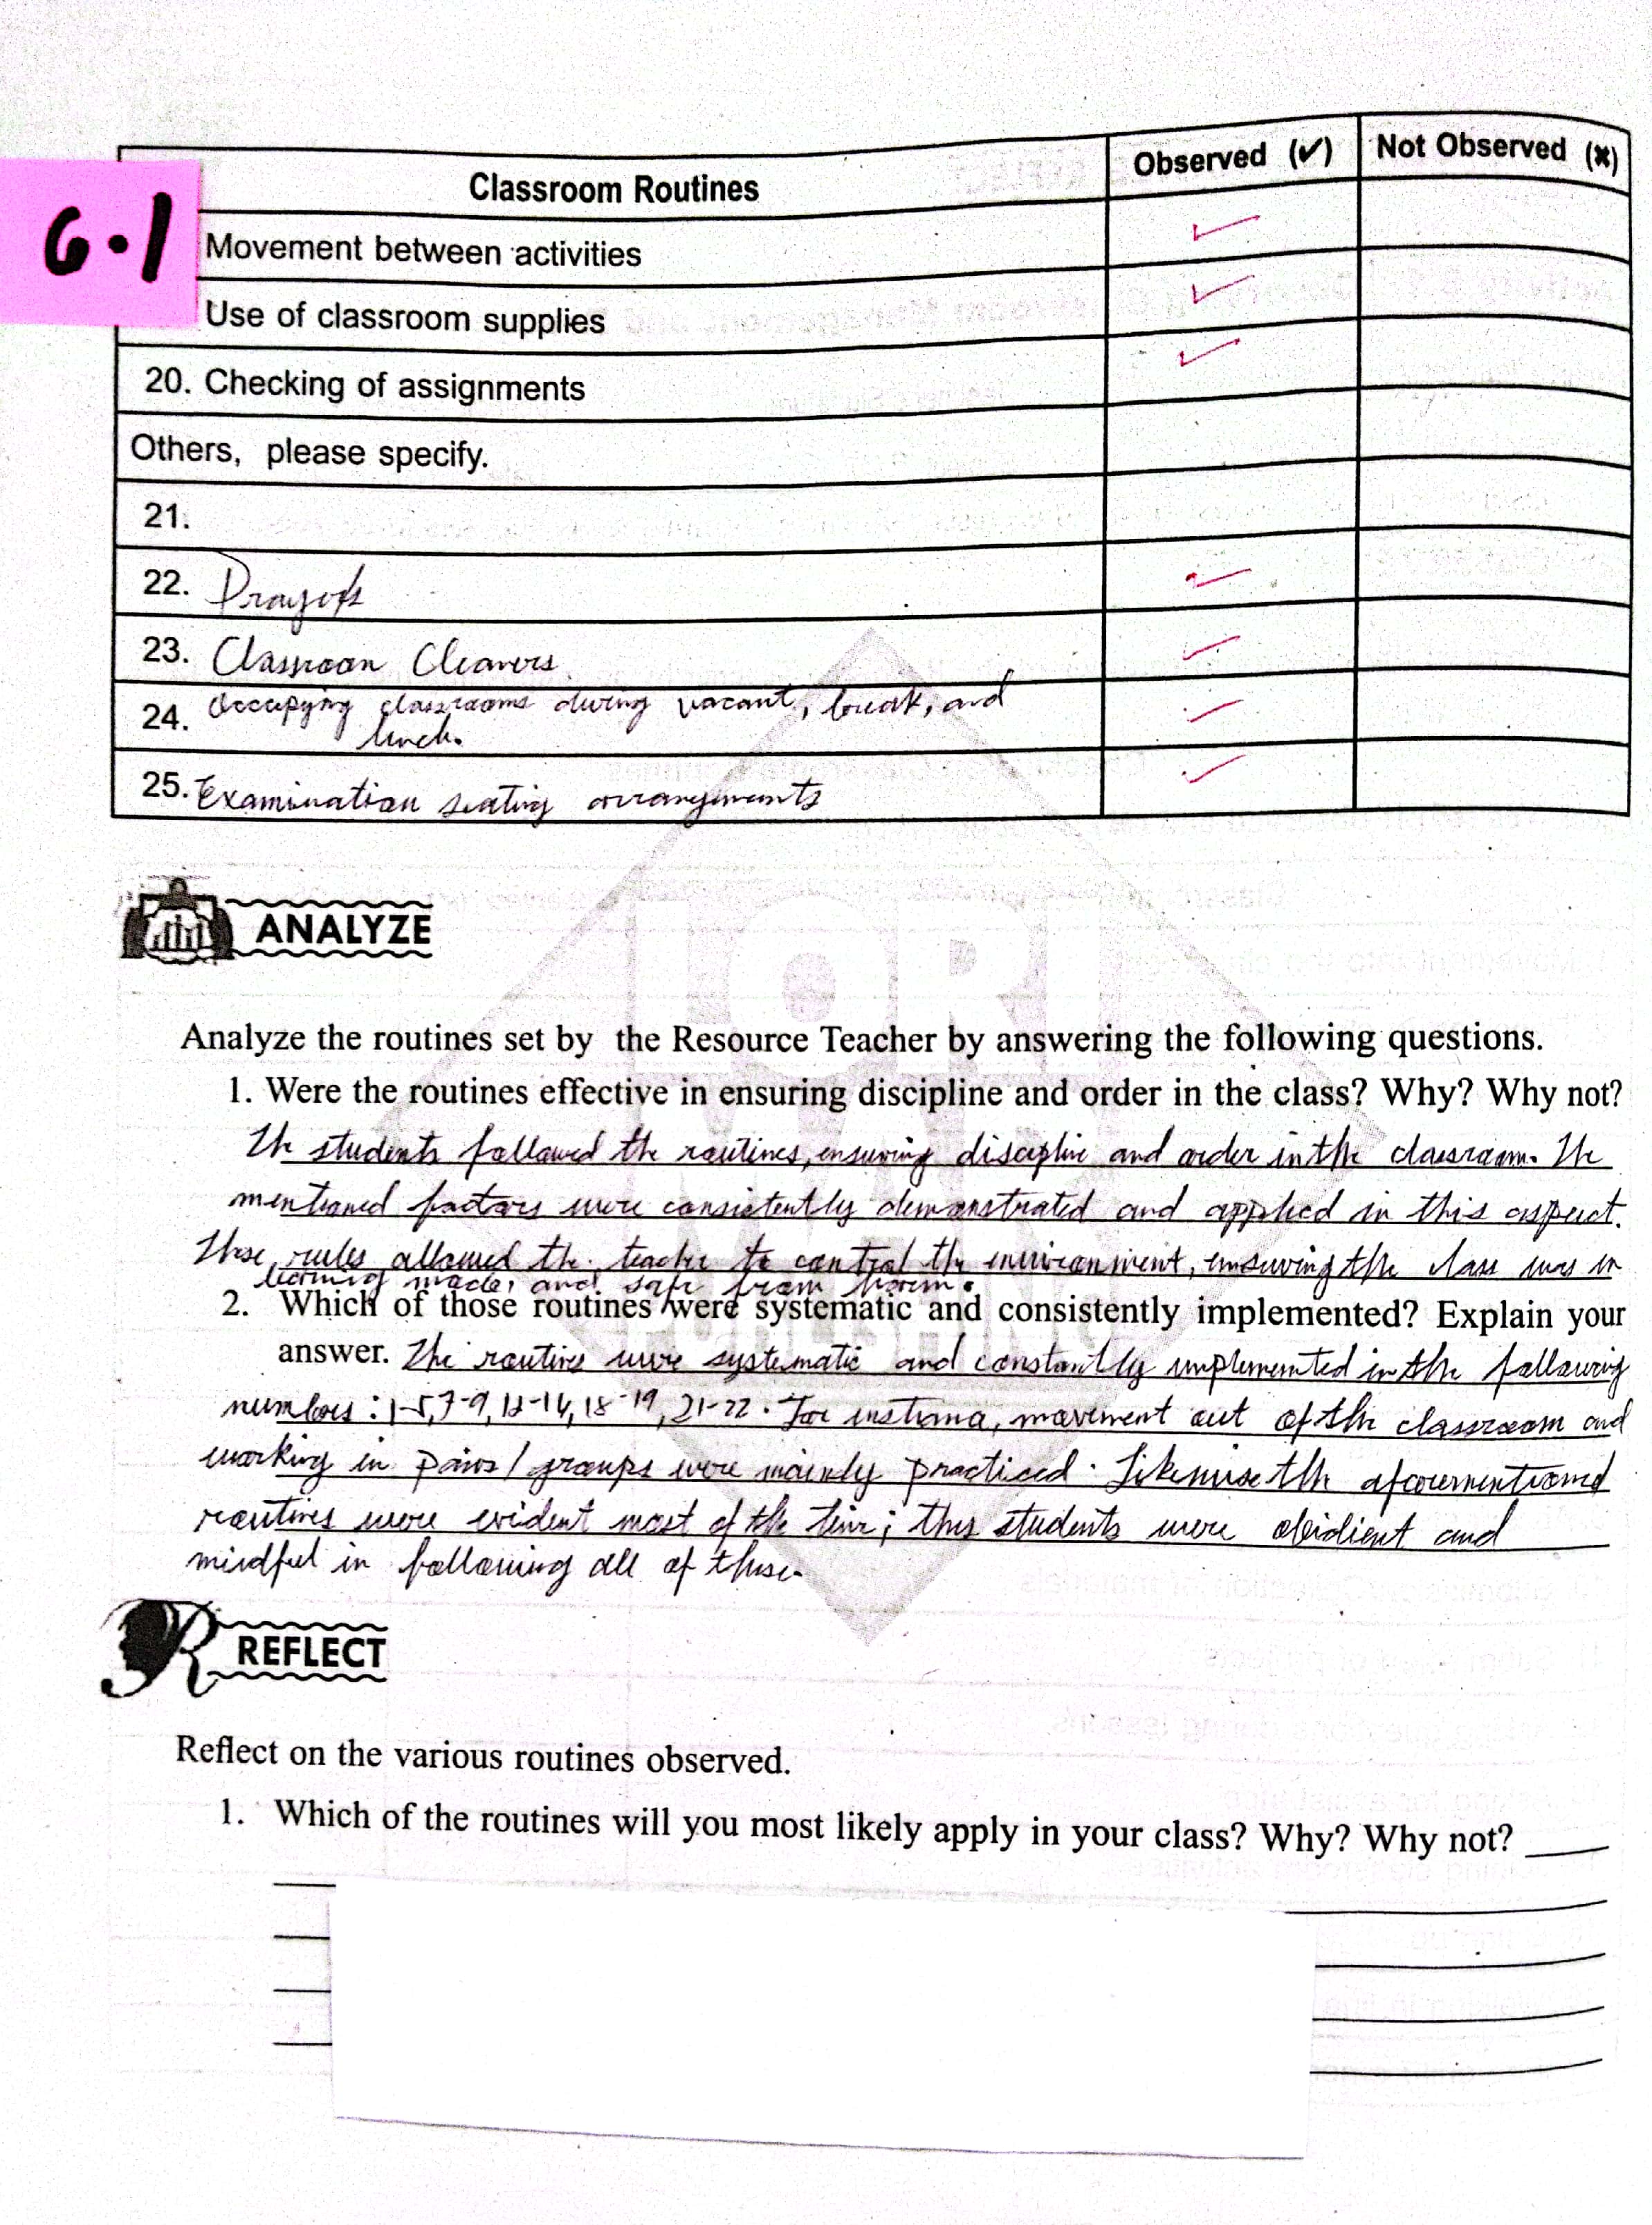 Classroom Routines Observed (✓) Not Observed (✖)
6.1
Movement between activities ✓
Use of classroom supplies ✓
20. Checking of assignments ✓
Others, please specify.
21.
22. Prayers ✓
23. Classroom Cleaners ✓
24. Occupying classrooms during vacant, break, and
lunch. ✓
25. Examination seating arrangements ✓
ANALYZE
Analyze the routines set by the Resource Teacher by answering the following questions.
1. Were the routines effective in ensuring discipline and order in the class? Why? Why not?
The students followed the routines, ensuring discipline and order in the classroom. The
mentioned factors were consistently demonstrated and applied in this aspect.
These rules allowed the teacher to control the environment, ensuring the class was in
learning mode, and safe from harm.
2. Which of those routines were systematic and consistently implemented? Explain your
answer. The routines were systematic and constantly implemented in the following
numbers: 1-5, 7-9, 18-19, 21-22. For movement out of the classroom and
working in pairs/groups were mainly practiced. Likewise the aforementioned
routines were evident most of the time; thus students were obidient and
mindful in following all of these.
REFLECT
Reflect on the various routines observed.
1. Which of the routines will you most likely apply in your class? Why? Why not?